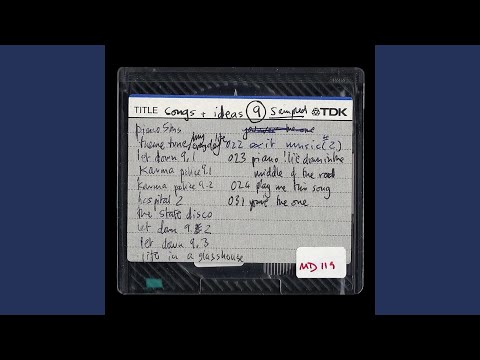 TITLE songs + ideas 9 sampled TDK
piano 5ths
theme tune / my life everyday
let down 9.1
Karma police 9.1
Karma police 9.2
hospital 2
the state disco
let down 9.2
let down 9.3
life in a glasshouse
the one
022 exit music (2)
023 piano! lie down in the
middle of the road
024 play me this song
031 you're the one
MD 119